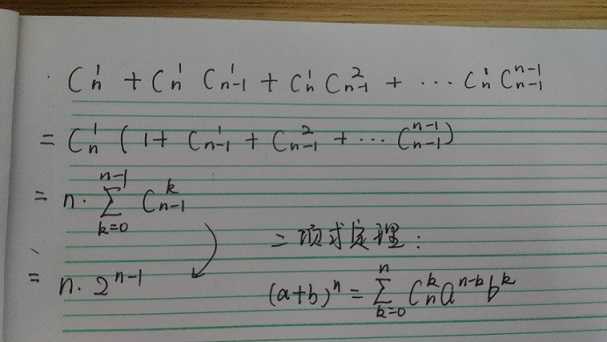 C_n^1 + C_n^1 C_{n-1}^1 + C_n^1 C_{n-1}^2 + ··· C_n^1 C_{n-1}^{n-1}
= C_n^1 ( 1 + C_{n-1}^1 + C_{n-1}^2 + ··· C_{n-1}^{n-1} )
= n · ∑_{k=0}^{n-1} C_{n-1}^k
= n · 2^{n-1}
二项式定理:
(a+b)^n = ∑_{k=0}^{n} C_n^k a^{n-k} b^k